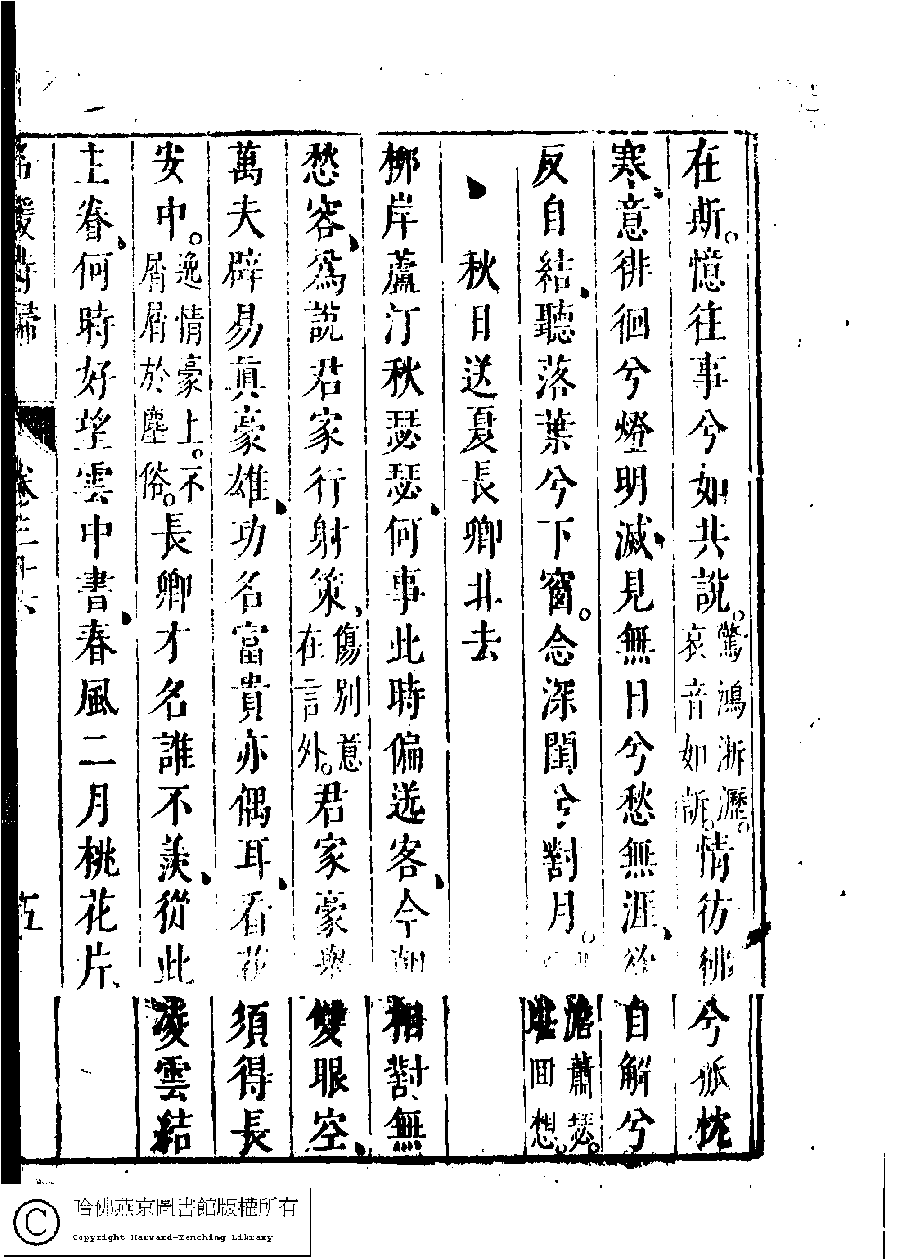 在斯。憶往事兮如共說。驚鴻淅瀝。哀音如訴。情彷彿兮孤枕
寒、意徘徊兮燈明滅、見無日兮愁無涯、欲自解兮
反自結、聽落葉兮下窗。念深閨兮對月。澹蕭瑟。堪回想。
秋日送夏長卿北去
柳岸蘆汀秋瑟瑟、何事此時偏送客、今朝相對無
愁容、為說君家行射策、傷別意在言外。君家豪舉雙眼空、
萬夫辟易真豪雄、功名富貴亦偶耳、看花須得長
安中。逸情豪上。不屑屑於塵俗。長卿才名誰不羨、從此凌雲結
主眷、何時好望雲中書、春風二月桃花片、
名媛詩歸 卷三十六 五
哈佛燕京圖書館版權所有
Copyright Harvard-Yenching Library